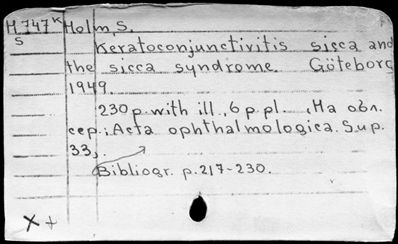 H.747к Holm S.
S
Keratoconjunctivitis sicca and
the sicca syndrome. Göteborg
1949.
230 p. with ill., 6 p. pl. (На обл.
сер.: Acta ophthalmologica. Sup.
33).
Bibliogr. p. 217-230.
X +